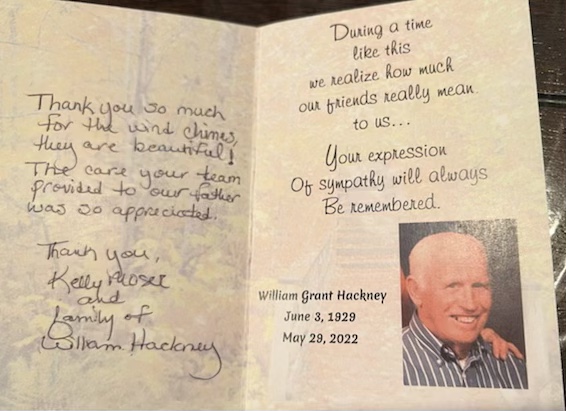 Thank you so much
for the wind chimes,
they are beautiful!
The care your team
provided to our father
was so appreciated.
Thank you,
Kelly Moser
and
family of
William Hackney
During a time
like this
we realize how much
our friends really mean
to us...
Your expression
Of sympathy will always
Be remembered.
William Grant Hackney
June 3, 1929
May 29, 2022